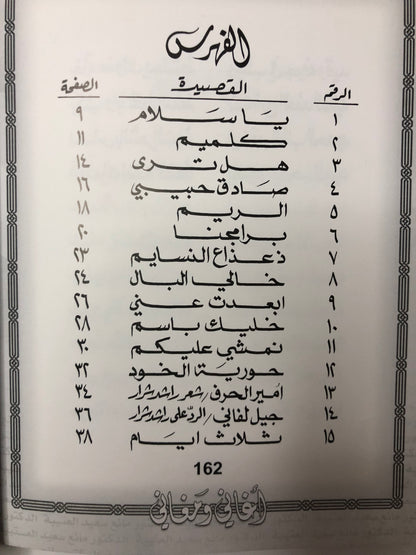 الفهرس
الرقم القصيدة الصفحة
١ يا سلام ٩
٢ كلميم ١١
٣ هل ترى ١٤
٤ صادق حبيبي ١٦
٥ الريم ١٨
٦ برامجنا ٢٠
٧ ذعذاع النسايم ٢٣
٨ خالي البال ٢٤
٩ ابعدت عني ٢٦
١٠ خليك باسم ٢٨
١١ نمشي عليكم ٣٠
١٢ حورية الخود ٣٢
١٣ أمير الحرف / شعر راشد شرار ٣٤
١٤ جيل لفاني / الرد على راشد شرار ٣٦
١٥ ثلاث ايام ٣٨
162